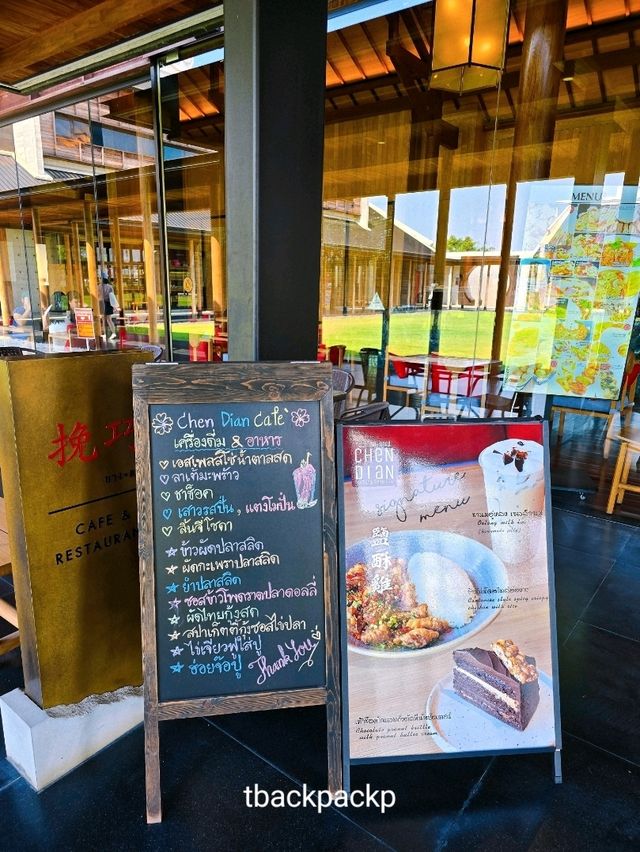 挽巧
CAFE &
RESTAURAN
Chen Dian Cafe'
เครื่องดื่ม & อาหาร
เอสเพลสโซ่น้ำตาลสด
ลาเต้มะพร้าว
ชาช็อค
เสาวรสปั่น, แตงโมปั่น
ลิ้นจี่โซดา
ข้าวผัดปลาสลิด
ผัดกะเพราปลาสลิด
ยำปลาสลิด
ซอสข้าวโพดราดปลาดอลลี่
ผัดไทยกุ้งสด
สปาเก็ตตี้กุ้งซอสไข่ปลา
ไข่เจียวฟูใส่ปู
ฮ่อยจ๊อปู
Thank You
CHEN
DIAN
signature
menu
鹽酥雞
Chocolate peanut brittle
with peanut butter cream
MENU
tbackpackp